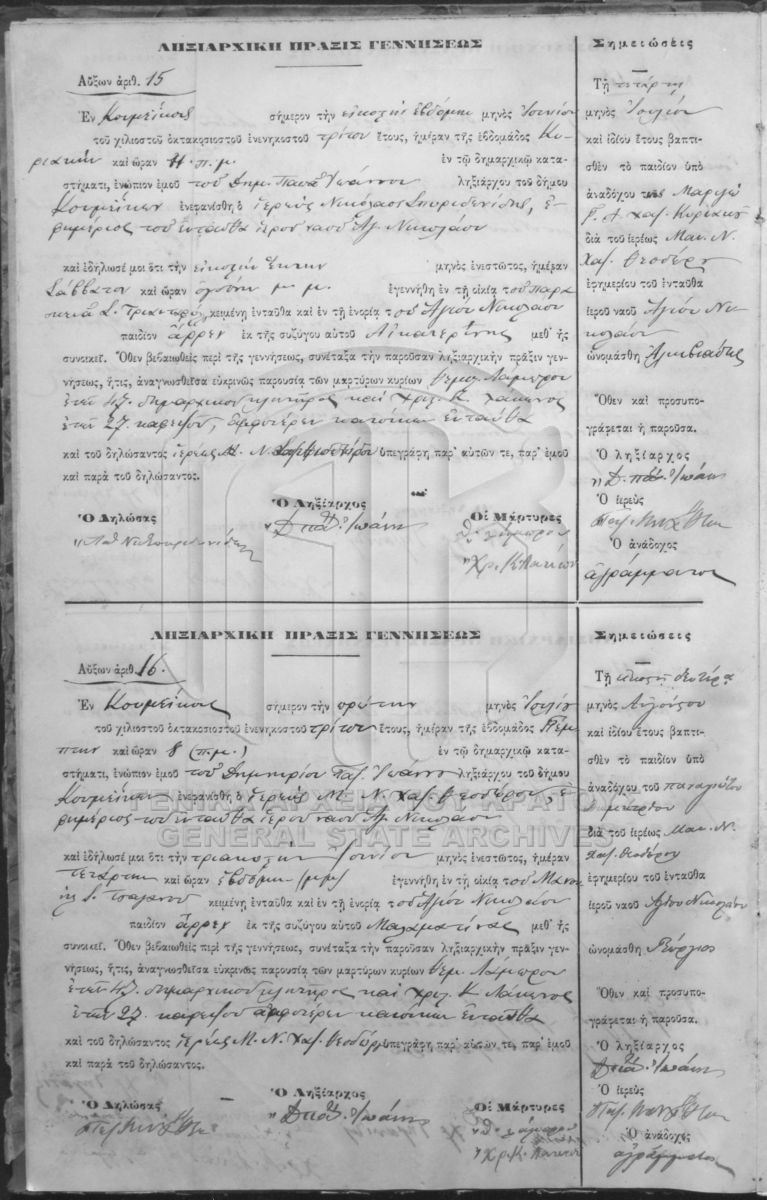 ΛΗΞΙΑΡΧΙΚΗ ΠΡΑΞΙΣ ΓΕΝΝΗΣΕΩΣ
Αὔξων ἀριθ. 15
Ἐν Κουμεΐκοις σήμερον τὴν εἰκοστὴν ἑβδόμην μηνὸς Ἰουνίου
τοῦ χιλιοστοῦ ὀκτακοσιοστοῦ ἐνενηκοστοῦ τρίτου ἔτους, ἡμέραν τῆς ἑβδομάδος Κυ-
ριακὴν καὶ ὥραν π.μ. ἐν τῷ δημαρχικῷ κατα-
στήματι, ἐνώπιον ἐμοῦ τοῦ Δημ. Παπᾶ Ἰωάννου ληξιάρχου τοῦ δήμου
Κουμεΐκων ἐνεφανίσθη ὁ ἱερεὺς Νικόλαος Σπυριδωνίδης, ἐ-
φημέριος τοῦ ἐνταῦθα ἱεροῦ ναοῦ Ἁγ. Νικολάου
καὶ ἐδήλωσέ μοι ὅτι τὴν εἰκοστὴν ἕκτην μηνὸς ἐνεστῶτος, ἡμέραν
Σάββατον καὶ ὥραν ὀγδόην μ.μ. ἐγεννήθη ἐν τῇ οἰκίᾳ τοῦ Παρα
σκευᾶ κειμένῃ ἐνταῦθα καὶ ἐν τῇ ἐνορίᾳ τοῦ Ἁγίου Νικολάου
παιδίον ἄρρεν ἐκ τῆς συζύγου αὐτοῦ Αἰκατερίνης μεθ᾽ ἧς
συνοικεῖ. Ὅθεν βεβαιωθεὶς περὶ τῆς γεννήσεως, συνέταξα τὴν παροῦσαν ληξιαρχικὴν πρᾶξιν γεν-
νήσεως, ἥτις, ἀναγνωσθεῖσα εὐκρινῶς παρουσίᾳ τῶν μαρτύρων κυρίων Θεμ. Λάμπρου
ἐτῶν 47 δημαρχικοῦ κλητῆρος καὶ Χρισ. Κ. Λάκωνος
ἐτῶν 27 καφεπώλου, ἀμφοτέρων κατοίκων ἐνταῦθα
καὶ τοῦ δηλώσαντος ἱερέως Μ. Ν. ὑπεγράφη παρ᾽ αὐτῶν τε, παρ᾽ ἐμοῦ
καὶ παρὰ τοῦ δηλώσαντος.
Ὁ Δηλώσας Ὁ Ληξίαρχος Οἱ Μάρτυρες
Δ. Παπᾶ Ἰωάννου
Θ. Λάμπρου
Χρ. Κ. Λάκων
Σημειώσεις
Τῇ τετάρτῃ
μηνὸς Ἰουλίου
καὶ ἰδίου ἔτους βαπτι-
σθὲν τὸ παιδίον ὑπὸ
ἀναδόχου τῆς Μαριγῶ
Χαζ. Κυριακοῦ
διὰ τοῦ ἱερέως Μαν. Ν.
Χαζ. Θεοδώρου
ἐφημερίου τοῦ ἐνταῦθα
ἱεροῦ ναοῦ Ἁγίου Νι-
κολάου
ὠνομάσθη Ἀλκιβιάδης
Ὅθεν καὶ προσυπο-
γράφεται ἡ παροῦσα.
Ὁ ληξίαρχος
Δ. Παπᾶ Ἰωάννου
Ὁ ἱερεὺς
Ὁ ἀνάδοχος
ἀγράμματος
ΛΗΞΙΑΡΧΙΚΗ ΠΡΑΞΙΣ ΓΕΝΝΗΣΕΩΣ
Αὔξων ἀριθ. 16.
Ἐν Κουμεΐκοις σήμερον τὴν πρώτην μηνὸς Ἰουλίου
τοῦ χιλιοστοῦ ὀκτακοσιοστοῦ ἐνενηκοστοῦ τρίτου ἔτους, ἡμέραν τῆς ἑβδομάδος Πέμ-
πτην καὶ ὥραν 8 (π.μ.) ἐν τῷ δημαρχικῷ κατα-
στήματι, ἐνώπιον ἐμοῦ τοῦ Δημητρίου Παπ. Ἰωάννου ληξιάρχου τοῦ δήμου
Κουμεΐκων ἐνεφανίσθη ὁ ἱερεὺς Μ. Ν. Χαζ. Θεοδώρου, ἐ-
φημέριος τοῦ ἐνταῦθα ἱεροῦ ναοῦ Ἁγ. Νικολάου
καὶ ἐδήλωσέ μοι ὅτι τὴν τριακοστὴν Ἰουνίου μηνὸς ἐνεστῶτος, ἡμέραν
Τετάρτην καὶ ὥραν ἑβδόμην (μ.μ.) ἐγεννήθη ἐν τῇ οἰκίᾳ τοῦ Μανω
κειμένῃ ἐνταῦθα καὶ ἐν τῇ ἐνορίᾳ τοῦ Ἁγίου Νικολάου
παιδίον ἄρρεν ἐκ τῆς συζύγου αὐτοῦ Μαλαματένιας μεθ᾽ ἧς
συνοικεῖ. Ὅθεν βεβαιωθεὶς περὶ τῆς γεννήσεως, συνέταξα τὴν παροῦσαν ληξιαρχικὴν πρᾶξιν γεν-
νήσεως, ἥτις, ἀναγνωσθεῖσα εὐκρινῶς παρουσίᾳ τῶν μαρτύρων κυρίων Θεμ. Λάμπρου
ἐτῶν 47 δημαρχικοῦ κλητῆρος καὶ Χρισ. Κ. Λάκωνος
ἐτῶν 27 καφεπώλου ἀμφοτέρων κατοίκων ἐνταῦθα
καὶ τοῦ δηλώσαντος ἱερέως Μ. Ν. Χαζ. Θεοδώρου ὑπεγράφη παρ᾽ αὐτῶν τε, παρ᾽ ἐμοῦ
καὶ παρὰ τοῦ δηλώσαντος.
Ὁ Δηλώσας Ὁ Ληξίαρχος Οἱ Μάρτυρες
Δ. Παπᾶ Ἰωάννου
Θ. Λάμπρου
Χρ. Κ. Λάκων
Σημειώσεις
Τῇ εἰκοστῇ δευτέρᾳ
μηνὸς Αὐγούστου
καὶ ἰδίου ἔτους βαπτι-
σθὲν τὸ παιδίον ὑπὸ
ἀναδόχου τοῦ Παναγιώτου
Δημητρίου
διὰ τοῦ ἱερέως Μαν. Ν.
Χαζ. Θεοδώρου
ἐφημερίου τοῦ ἐνταῦθα
ἱεροῦ ναοῦ Ἁγίου Νικολάου
ὠνομάσθη Γεώργιος
Ὅθεν καὶ προσυπο-
γράφεται ἡ παροῦσα.
Ὁ ληξίαρχος
Δ. Παπᾶ Ἰωάννου
Ὁ ἱερεὺς
Ὁ ἀνάδοχος
ἀγράμματος
ΓΕΝΙΚΑ ΑΡΧΕΙΑ ΤΟΥ ΚΡΑΤΟΥΣ
GENERAL STATE ARCHIVES